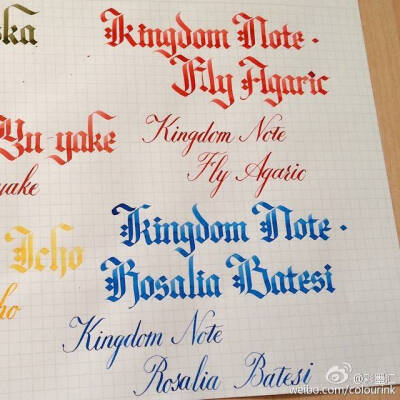 ska
Kingdom Note ·
Fly Agaric
Yu-yake
yake
Kingdom Note
Fly Agaric
Icho
ho
Kingdom Note ·
Rosalia Batesi
Kingdom Note
Rosalia Batesi
@彩墨汇
weibo.com/colourink